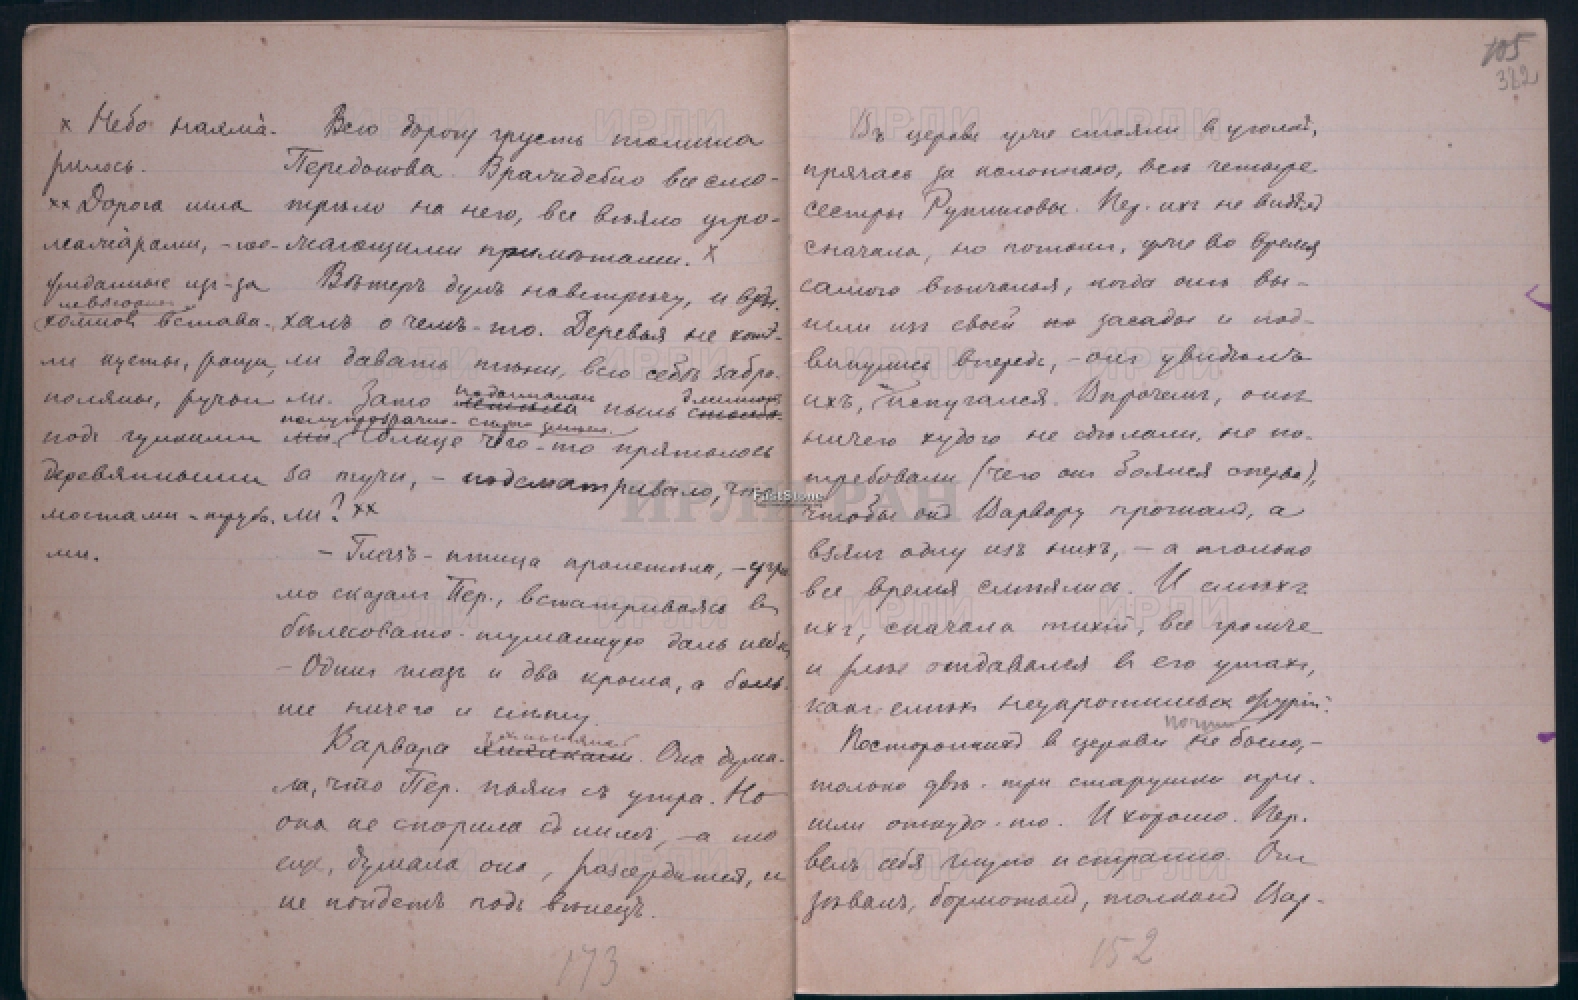 105
322
х Небо нахма-
рилось.
хх Дорога шла
увиданные из-за
холмов вставa-
ли кусты, рощи,
поляны, ручьи
подъ гулкими
деревянными
мостами-труба-
ми.
Всю дорогу грусть томила
Передонова. Враждебно все смо-
трѣло на него, все вѣяло угро-
жающими примѣтами. х
Вѣтеръ дулъ навстрѣчу, и взды-
халъ о чемъ-то. Деревья не хотѣ-
ли давать тѣни, всю себѣ забра-
ли. Зато пыль длинною
полупрозрачно-сѣрою змѣею.
Солнце чего-то пряталось
за тучи, – подсматривало, что
ли? хх
– Глазъ-птица пролетѣла, – угрю-
мо сказалъ Пер., всматриваясь въ
бѣлесовато-туманную даль неба,
– Одинъ глазъ и два крыла, а боль-
ше ничего и нѣту.
Варвара усмѣхнулась. Она дума-
ла, что Пер. пьянъ съ утра. Но
она не спорила съ нимъ, – а то
еще, думала она, разсердится, и
не пойдетъ подъ вѣнецъ.
173
Въ церкви уже стояли в уголкѣ,
прячась за колонною, всѣ четыре
сестры Рутиловы. Пер. ихъ не видѣлъ
сначала, но потомъ, уже во время
самого вѣнчанья, когда онѣ вы-
шли изъ своей засады и под-
винулись впередъ, – онъ увидѣлъ
ихъ, и испугался. Впрочемъ, онѣ
ничего худого не сдѣлали, не по-
требовали (чего онъ боялся сперва),
чтобы онъ Варвару прогналъ, а
взялъ одну изъ нихъ, – а только
все время смѣялись. И смѣхъ
ихъ, сначала тихій, все громче
и злѣе отдавался в его ушахъ,
какъ смѣхъ неукротимыхъ фурій.
почти
Постороннихъ в церкви не было, –
только двѣ-три старушки при-
шли откуда-то. И хорошо. Пер.
велъ себя глупо и странно. Онъ
зѣвалъ, бормоталъ, толкалъ Вар-
152
ИРЛИ РАН
FastStone